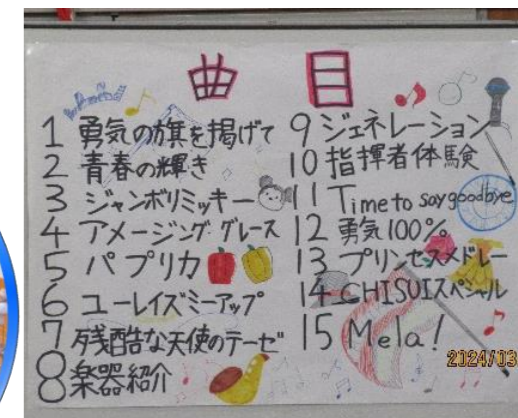 曲目
1 勇気の旗を掲げて
2 青春の輝き
3 ジャンボリミッキー
4 アメージング グレース
5 パプリカ
6 ユーレイズミーアップ
7 残酷な天使のテーゼ
8 楽器紹介
9 ジェネレーション
10 指揮者体験
11 Time to say goodbye
12 勇気100%
13 プリンセスメドレー
14 CHISUIスペシャル
15 Mela!
2024/03